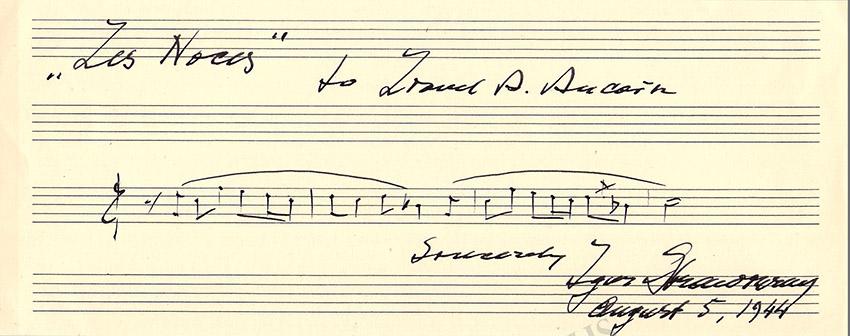 „Les Noces"
to Lionel A. Aucoin
Sincerely
Igor Stravinsky
August 5, 1944